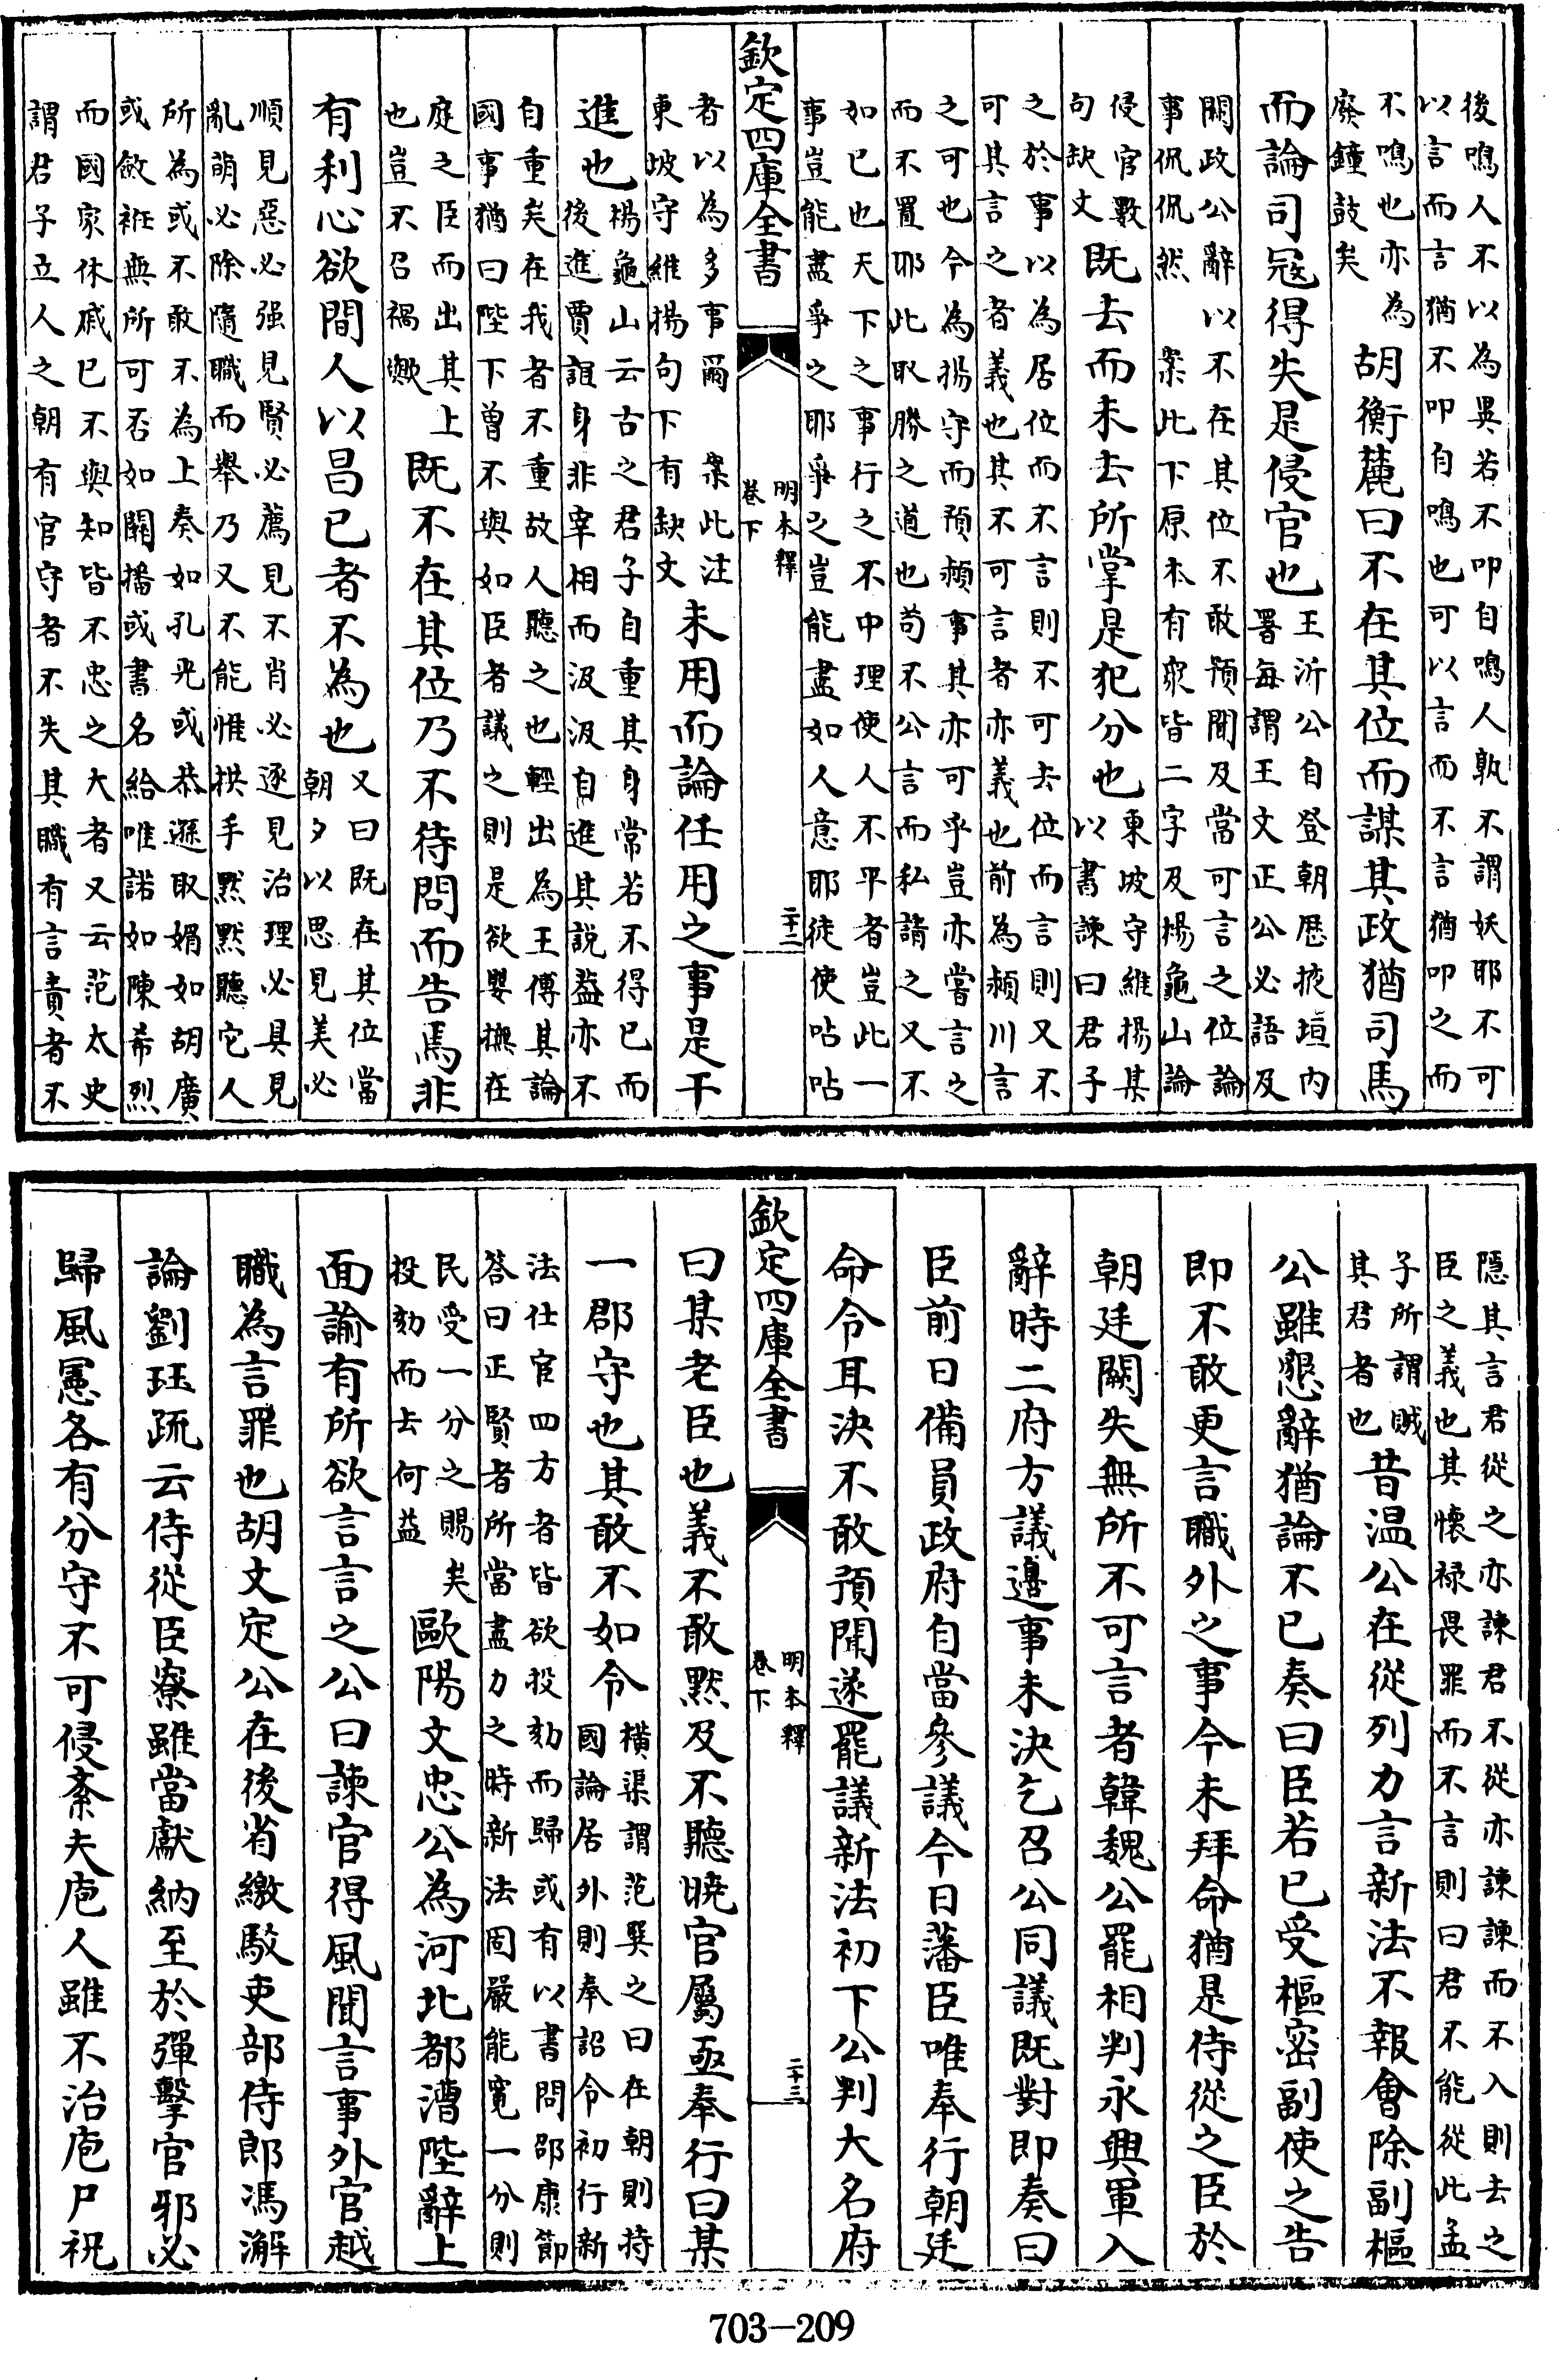 後鳴人不以為異若不叩自鳴人孰不謂妖耶不可
以言而言猶不叩自鳴也可以言而不言猶叩之而
不鳴也亦為
廢鐘鼓矣
胡衡麓曰不在其位而謀其政猶司馬
而論司冦得失是侵官也
王沂公自登朝歴掖垣内
署每謂王文正公必語及
闕政公辭以不在其位不敢預聞及當可言之位論
事侃侃然 案此下原本有衆皆二字及楊龜山論
侵官數
句缺文
既去而未去所掌是犯分也
東坡守維揚某
以書諫曰君子
之於事以為居位而不言則不可去位而言則又不
可其言之者義也其不可言者亦義也前為潁川言
之可也今為揚守而預潁事其亦可乎豈亦嘗言之
而不置耶此取勝之道也苟不公言而私請之又不
如已也天下之事行之不中理使人不平者豈此一
事豈能盡爭之耶爭之豈能盡如人意耶徒使呫呫
欽定四庫全書
明本釋
卷下
二十二
者以為多事爾 案此注
東坡守維揚句下有缺文
未用而論任用之事是干
進也
楊龜山云古之君子自重其身常若不得已而
後進賈誼身非宰相而汲汲自進其說葢亦不
自重矣在我者不重故人聽之也輕出為王傅其論
國事猶曰陛下曾不與如臣者議之則是欲嬰撫在
庭之臣而出其上
也豈不召禍歟
既不在其位乃不待問而告焉非
有利心欲間人以昌已者不為也
又曰既在其位當
朝夕以思見美必
順見惡必强見賢必薦見不肖必逐見治理必具見
亂萌必除隨職而舉乃又不能惟拱手黙黙聽它人
所為或不敢不為上奏如孔光或恭遜取媚如胡廣
或斂袵無所可否如闗播或書名給唯諾如陳希烈
而國家休戚已不與知皆不忠之大者又云范太史
謂君子立人之朝有官守者不失其職有言責者不
隠其言君從之亦諫君不從亦諫諫而不入則去之
臣之義也其懐禄畏罪而不言則曰君不能從此孟
子所謂賊
其君者也
昔温公在從列力言新法不報會除副樞
公雖懇辭猶論不已奏曰臣若已受樞密副使之告
即不敢更言職外之事今未拜命猶是侍從之臣於
朝廷闕失無所不可言者韓魏公罷相判永興軍入
辭時二府方議邉事未決乞召公同議既對即奏曰
臣前日備員政府自當參議今日藩臣唯奉行朝廷
命令耳決不敢預聞遂罷議新法初下公判大名府
欽定四庫全書
明本釋
卷下
二十三
曰某老臣也義不敢黙及不聽曉官屬亟奉行曰某
一郡守也其敢不如令
橫渠謂范巽之曰在朝則持
國論居外則奉詔令初行新
法仕宦四方者皆欲投劾而歸或有以書問邵康節
答曰正賢者所當盡力之時新法固嚴能寛一分則
民受一分之賜矣
投劾而去何益
歐陽文忠公為河北都漕陛辭上
面諭有所欲言言之公曰諫官得風聞言事外官越
職為言罪也胡文定公在後省繳駮吏部侍郎馮澥
論劉珏疏云侍從臣寮雖當獻納至於彈擊官邪必
歸風憲各有分守不可侵紊夫庖人雖不治庖尸祝
703—209